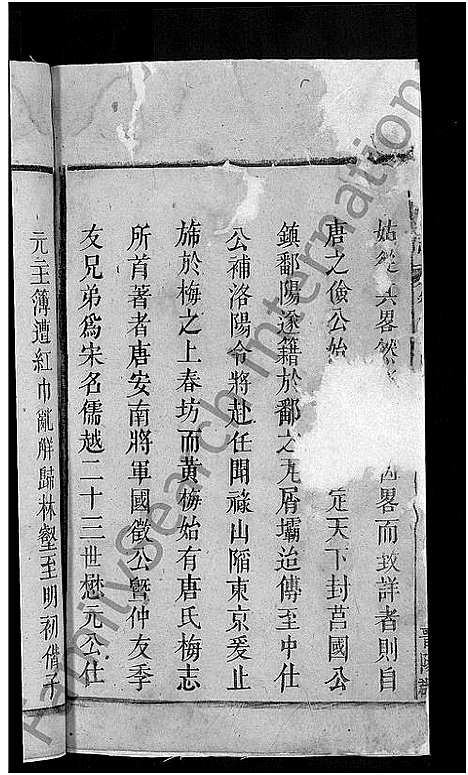 姑從其畧然 而畧而致詳者則自
唐之儉公始 定天下封莒國公
鎮鄱陽遂籍於鄱之瓦屑壩迨傳至中仕
公補洛陽令將赴任聞祿山陷東京爰止
斾於梅之上春坊而黃梅始有唐氏梅志
所首著者唐安南將軍國徵公曁仲友季
友兄弟爲宋名儒越二十三世懋元公仕
元主簿遭紅巾亂辭歸林壑至明初偕子
晉陽郡
FamilySearch International